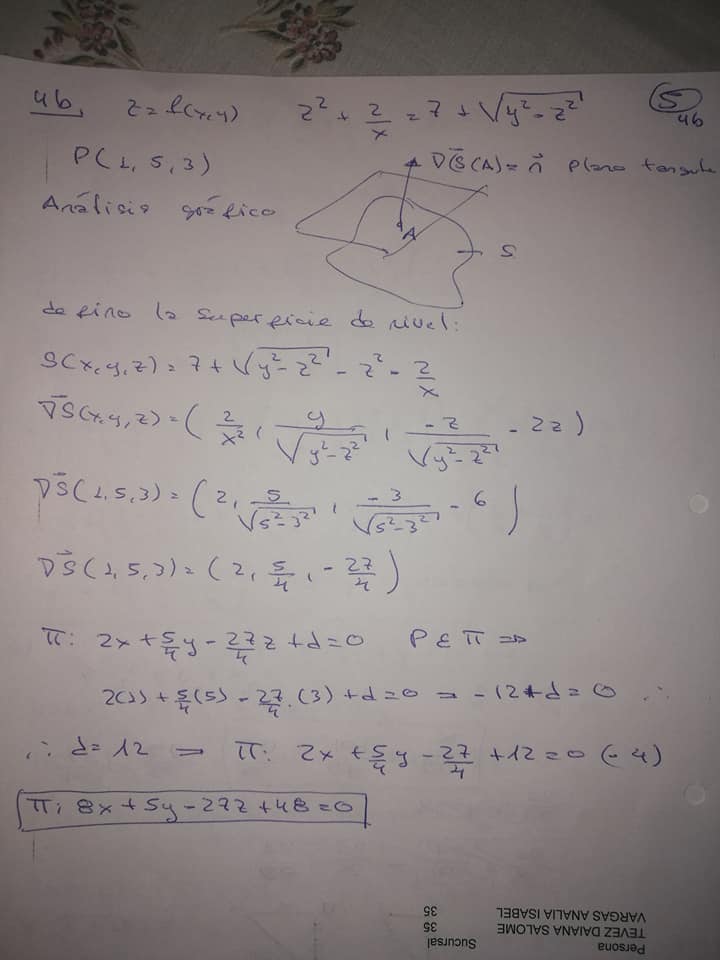 4b. z = f(x,y) z² + 2/x = 7 + √(y² - z²) 5 4b
P(1, 5, 3) ∇S(A) = n⃗ plano tangente
Análisis gráfico
A
S
defino la superficie de nivel:
S(x,y,z) = 7 + √(y² - z²) - z² - 2/x
∇S(x,y,z) = ( 2/x² , y/√(y² - z²) , -z/√(y² - z²) - 2z )
∇S(1,5,3) = ( 2, 5/√(5² - 3²) , -3/√(5² - 3²) - 6 )
∇S(1,5,3) = ( 2, 5/4, - 27/4 )
π: 2x + 5/4 y - 27/4 z + d = 0 P ∈ π ⇒
2(1) + 5/4 (5) - 27/4 . (3) + d = 0 ⇒ -12 + d = 0 ∴
∴ d = 12 ⇒ π: 2x + 5/4 y - 27/4 + 12 = 0 (- 4)
π: 8x + 5y - 27z + 48 = 0
Persona Sucursal
TEVEZ DAIANA SALOME 35
VARGAS ANALIA ISABEL 35